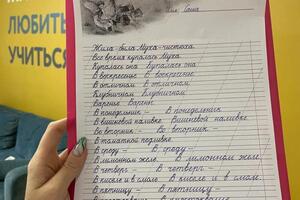 ЛЮБИТЬ
УЧИТЬСЯ
Имя: Саша
Жила-была Муха-чистюха.
Всё время купалась Муха.
Купалась она Купалась она
В воскресенье В воскресенье
В отличном В отличном
Клубничном Клубничном
Варенье. Варенье.
В понедельник – В понедельник
В вишнёвой наливке. Вишнёвой наливке.
Во вторник – Во вторник –
В томатной подливке.
В среду – В среду –
В лимонном желе. В лимонном желе.
В четверг – В четверг –
В киселе и в смоле. В киселе и в смоле.
В пятницу – В пятницу –